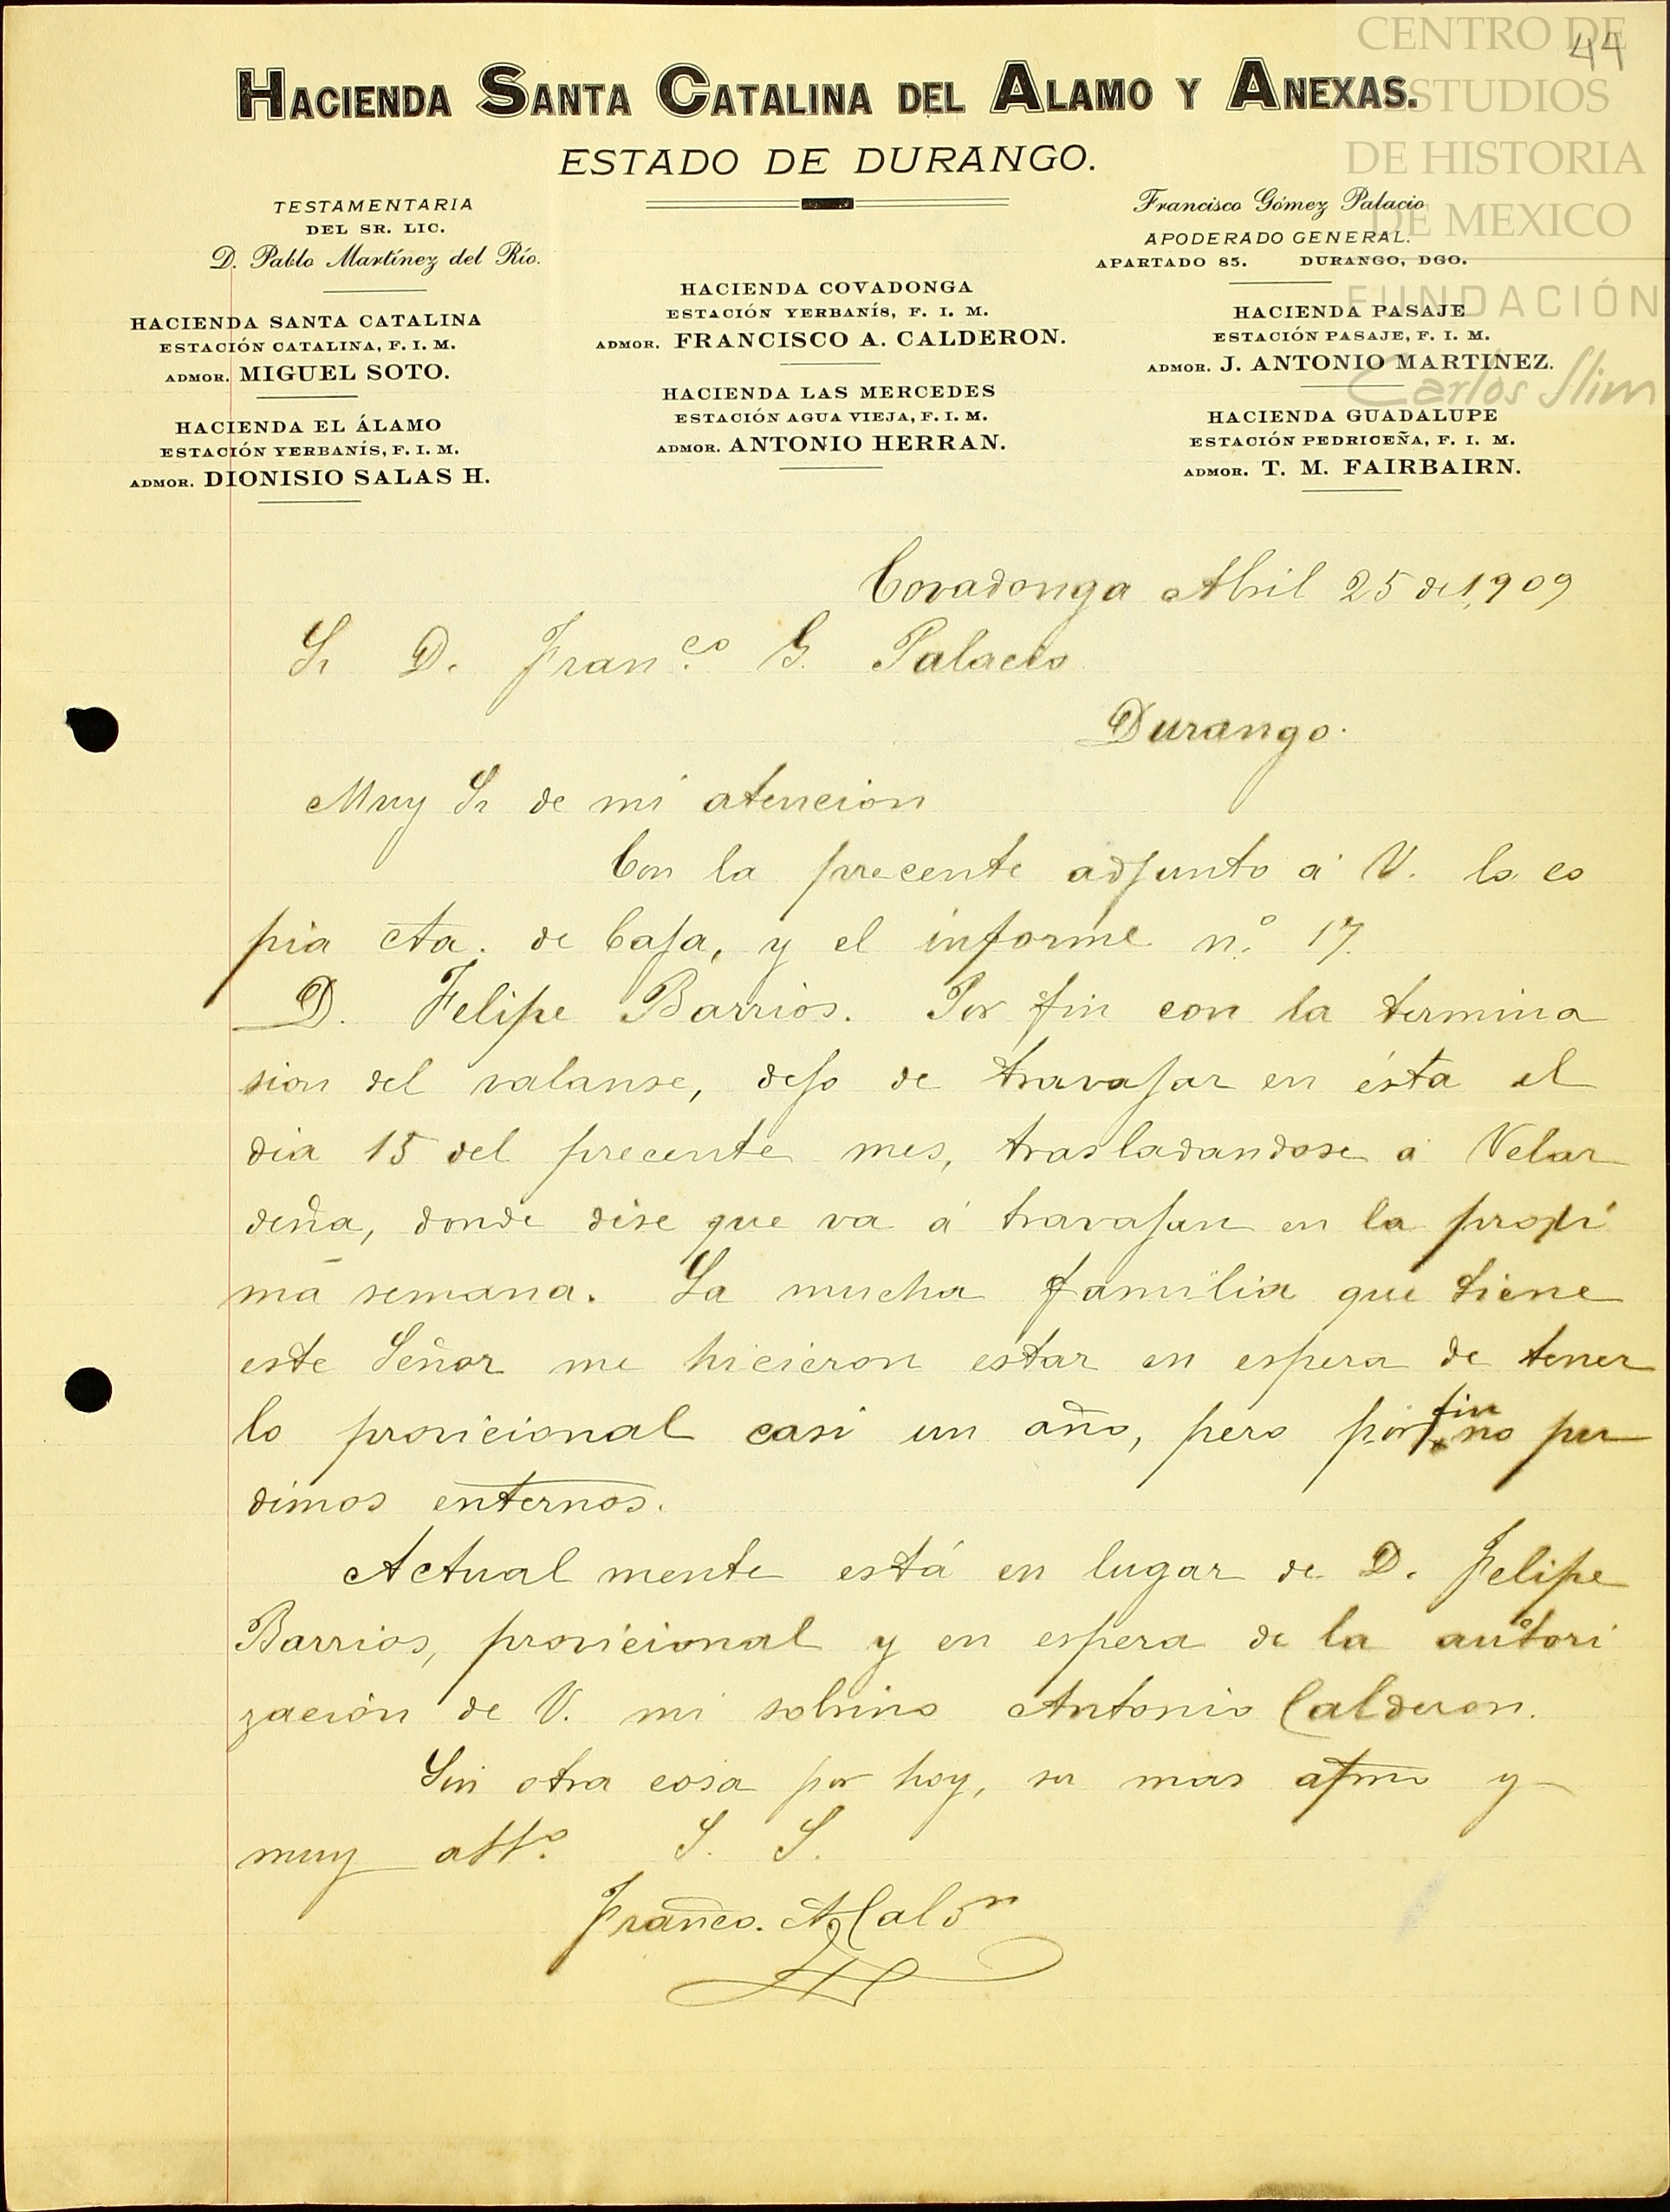 44
CENTRO DE
ESTUDIOS
DE HISTORIA
DE MEXICO
FUNDACIÓN
Carlos Slim
HACIENDA SANTA CATALINA DEL ALAMO Y ANEXAS.
ESTADO DE DURANGO.
TESTAMENTARIA
DEL SR. LIC.
D. Pablo Martínez del Río.
HACIENDA SANTA CATALINA
ESTACIÓN CATALINA, F. I. M.
ADMOR. MIGUEL SOTO.
HACIENDA EL ÁLAMO
ESTACIÓN YERBANÍS, F. I. M.
ADMOR. DIONISIO SALAS H.
HACIENDA COVADONGA
ESTACIÓN YERBANÍS, F. I. M.
ADMOR. FRANCISCO A. CALDERON.
HACIENDA LAS MERCEDES
ESTACIÓN AGUA VIEJA, F. I. M.
ADMOR. ANTONIO HERRAN.
Francisco Gómez Palacio
APODERADO GENERAL.
APARTADO 85. DURANGO, DGO.
HACIENDA PASAJE
ESTACIÓN PASAJE, F. I. M.
ADMOR. J. ANTONIO MARTINEZ.
HACIENDA GUADALUPE
ESTACIÓN PEDRICEÑA, F. I. M.
ADMOR. T. M. FAIRBAIRN.
Covadonga Abril 25 de 1,909
Sr D. Franco. G. Palacio
Durango.
Muy Sr de mi atencion
Con la precente adjunto á V. la co
pia cta. de Caja, y el informe n.º 17.
D. Felipe Barrios. Por fin con la termina
sion del valanse, dejo de travajar en ésta el
dia 15 del precente mes, trasladandose á Velar
deña, donde dise que va á travajar en la proxi
ma semana. La mucha familia que tiene
este Señor me hicieron estar en espera de tener
lo provicional casi un año, pero por fin no pu
dimos enternos.
Actual mente está en lugar de D. Felipe
Barrios, provicional y en espera de la autori
zación de V. mi sobrino Antonio Calderon.
Sin otra cosa por hoy, su mas afmo y
muy atto. S. S.
Franco. A. Calon